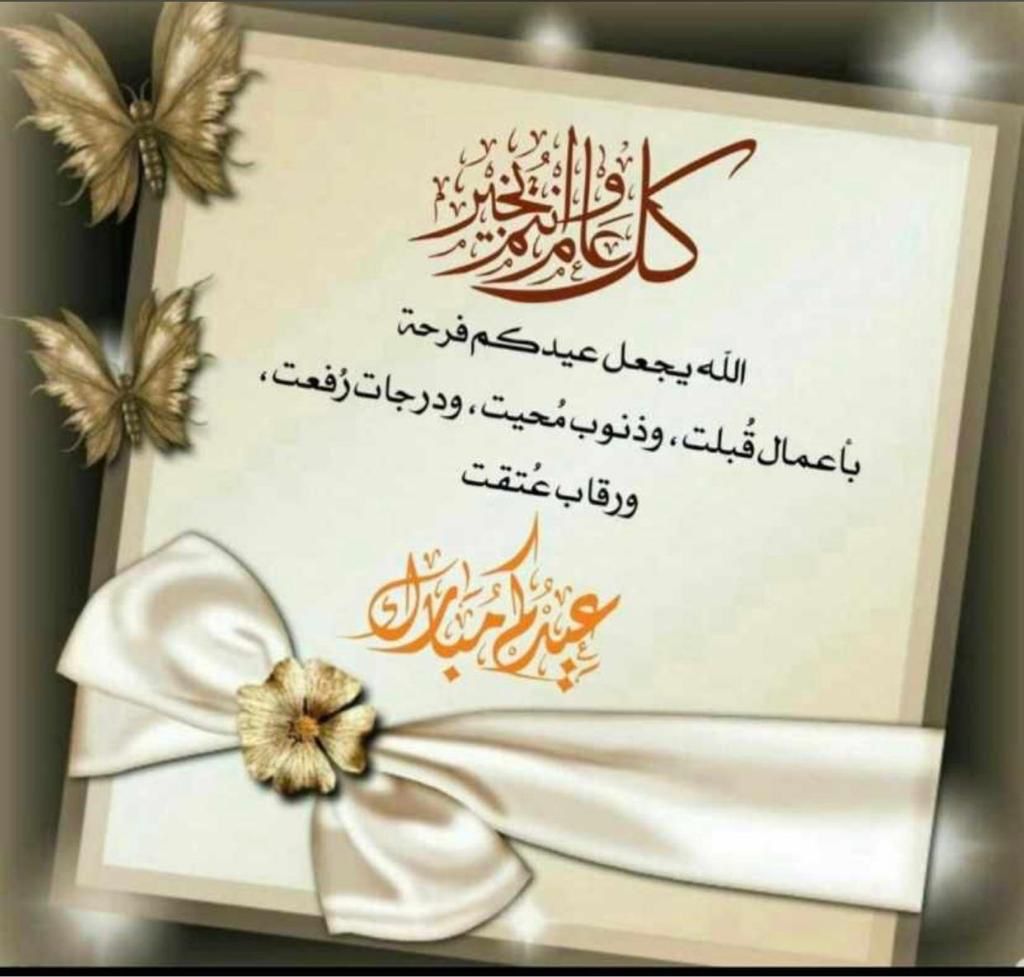 كل عام وانتم بخير
الله يجعل عيدكم فرحة
بأعمال قُبلت، وذنوب مُحيت، ودرجات رُفعت،
ورقاب عُتقت
عيدكم مبارك